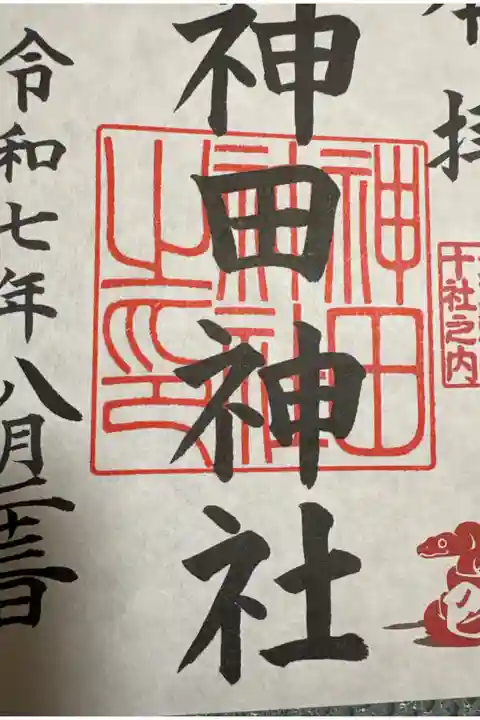 奉拝
十社之内
神田神社
神田神社之印
令和七年八月二十三日